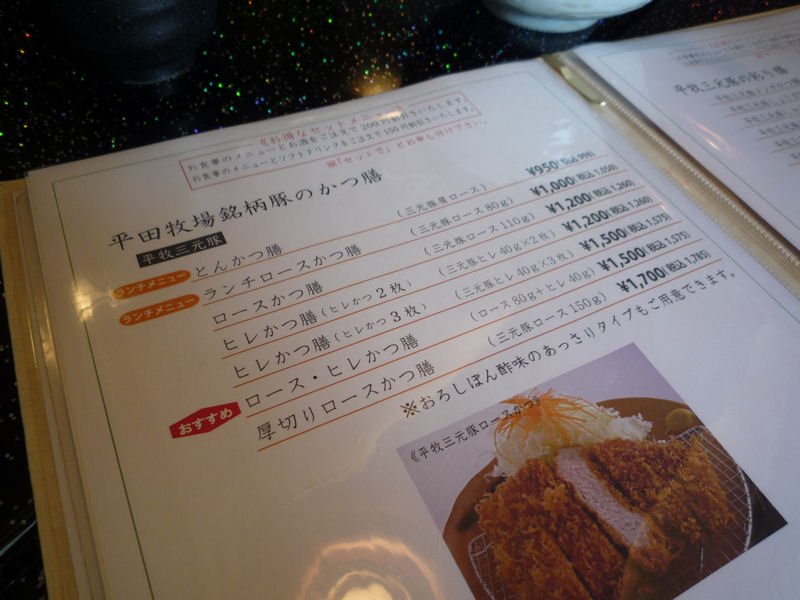 《お得なセットメニュー》
お食事のメニューとお酒をご注文で200円割引きいたします。
お食事のメニューとソフトドリンクをご注文で100円割引きいたします。
※「セットで」とお申し付け下さい。
平田牧場銘柄豚のかつ膳
平牧三元豚
ランチメニュー とんかつ膳 (三元豚肩ロース) ¥950(税込 998)
ランチメニュー ランチロースかつ膳 (三元豚ロース 80g) ¥1,000(税込 1,050)
ロースかつ膳 (三元豚ロース 110g) ¥1,200(税込 1,260)
ヒレかつ膳(ヒレかつ 2枚) (三元豚ヒレ 40g×2枚) ¥1,200(税込 1,260)
ヒレかつ膳(ヒレかつ 3枚) (三元豚ヒレ 40g×3枚) ¥1,500(税込 1,575)
ロース・ヒレかつ膳 (ロース80g+ヒレ40g) ¥1,500(税込 1,575)
おすすめ 厚切りロースかつ膳 (三元豚ロース 150g) ¥1,700(税込 1,785)
※おろしぽん酢味のあっさりタイプもご用意できます。
《平牧三元豚ロースかつ》
平牧三元豚の彩り膳